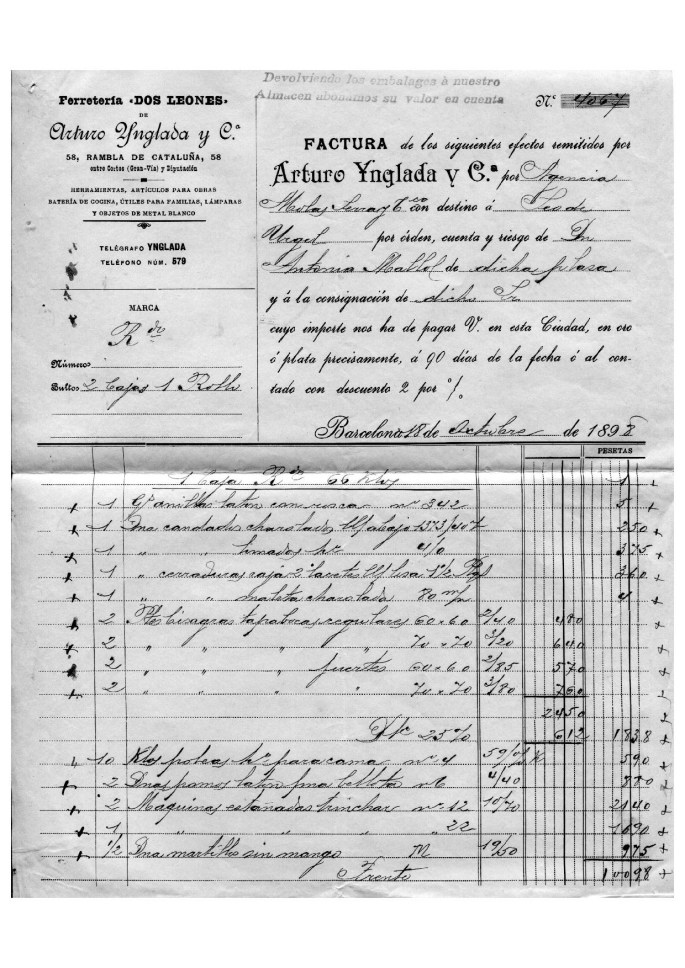 Devolviendo los embalages à nuestro
Almacen abonamos su valor en cuenta
Ferretería «DOS LEONES»
DE
Arturo Ynglada y C.ª
58, RAMBLA DE CATALUÑA, 58
entre Cortes (Gran-Vía) y Diputación
HERRAMIENTAS, ARTÍCULOS PARA OBRAS
BATERÍA DE COCINA, ÚTILES PARA FAMILIAS, LÁMPARAS
Y OBJETOS DE METAL BLANCO
TELÉGRAFO YNGLADA
TELÉFONO NÚM. 579
MARCA
R do
Números
Bultos 2 Cajas 1 Rollo
N.º 4067
FACTURA de los siguientes efectos remitidos por
Arturo Ynglada y C.ª por Agencia
Molas Serra y Cª con destino á Seo de
Urgel por órden, cuenta y riesgo de Dn
Antonio Mallol de dicha plasa
y á la consignación de dicho Sr
cuyo importe nos ha de pagar V. en esta Ciudad, en oro
ó plata precisamente, á 90 días de la fecha ó al con-
tado con descuento 2 por %.
Barcelona 18 de Octubre de 1898
PESETAS
1 Caja R do 66 Klos 1
1 Gª anillas laton con rosca nº 342 5
1 Dna candados charolados abajo 1373/40 250
1 " " limados hº 4/0 375
1 " cerraduras caja 360
1 " " maleta charolada 80 m/m 4
2 bisagras tapabocas regulares 60 x 60 2/40 480
2 " " " 70 x 70 3/20 640
2 " " fuertes 60 x 60 2/85 570
2 " " " 70 x 70 3/80 760
2450
Dto 25 % 612 1838
10 Klos poleas hº para cama nº 4 59/0 590
2 Dnas pomos laton bellota nº 6 4/40 880
2 Máquinas estañadas trinchar nº 12 10/70 2140
1 " " " " 22 1690
1/2 Dna martillos sin mango M 19/50 975
Frente 10098